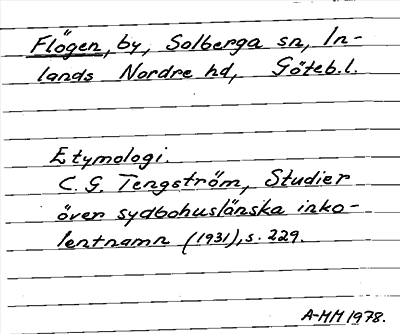 Flögen, by, Solberga sn, In-
lands Nordre hd, Göteb.l.
Etymologi.
C. G. Tengström, Studier
över sydbohuslänska inko-
lentnamn (1931), s. 229.
A-MH 1978.